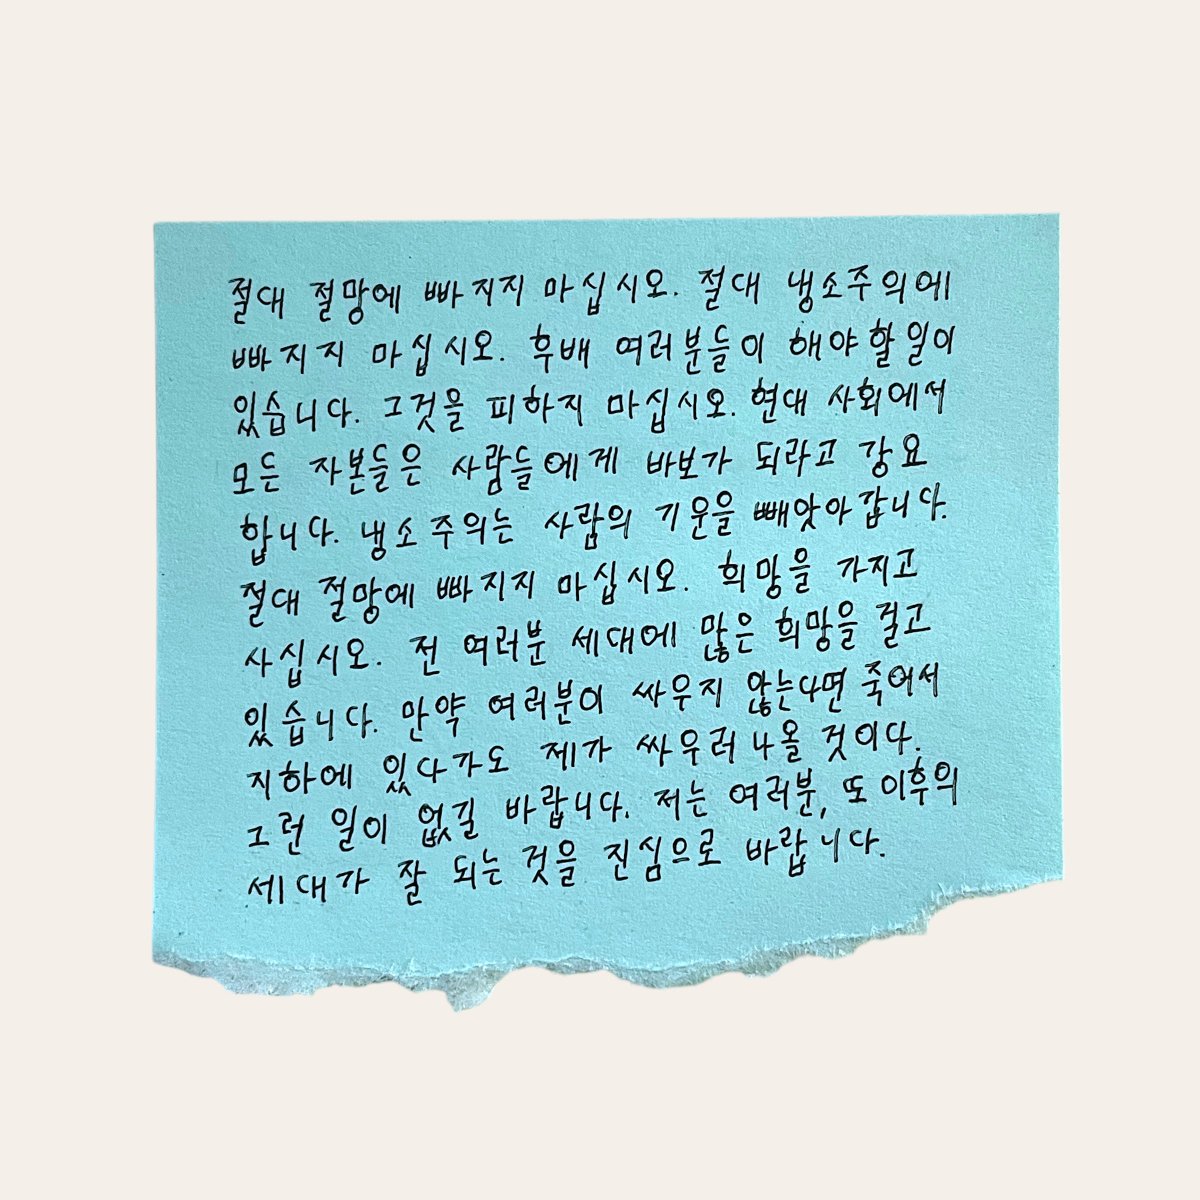 절대 절망에 빠지지 마십시오. 절대 냉소주의에
빠지지 마십시오. 후배 여러분들이 해야할일이
있습니다. 그것을 피하지 마십시오. 현대 사회에서
모든 자본들은 사람들에게 바보가 되라고 강요
합니다. 냉소주의는 사람의 기운을 빼앗아갑니다.
절대 절망에 빠지지 마십시오. 희망을 가지고
사십시오. 전 여러분 세대에 많은 희망을 걸고
있습니다. 만약 여러분이 싸우지 않는다면 죽어서
지하에 있다가도 제가 싸우러 나올 것이다.
그런 일이 없길 바랍니다. 저는 여러분, 또 이후의
세대가 잘 되는 것을 진심으로 바랍니다.